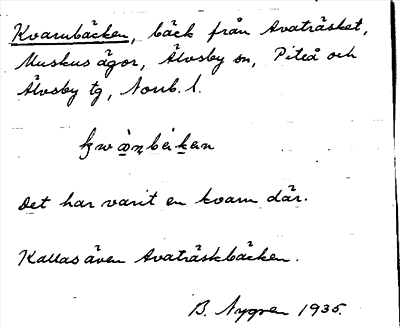 Kvarnbäcken, bäck från Avaträsket,
Muskus ägor, Älvsby sn, Piteå och
Älvsby tg, Norrb. l.
Det har varit en kvarn där.
Kallas även Avaträskbäcken.
B. Nygren 1935.